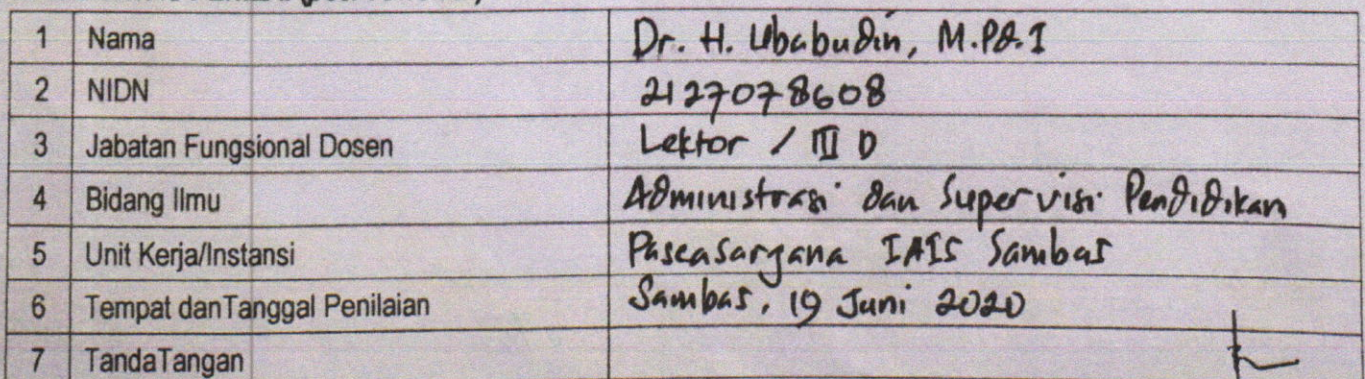 1 Nama Dr. H. Ubabudin, M.Pd.I
2 NIDN 2127078608
3 Jabatan Fungsional Dosen Lektor / III D
4 Bidang Ilmu Administrasi dan Supervisi Pendidikan
5 Unit Kerja/Instansi Pascasarjana IAIS Sambas
6 Tempat danTanggal Penilaian Sambas, 19 Juni 2020
7 TandaTangan